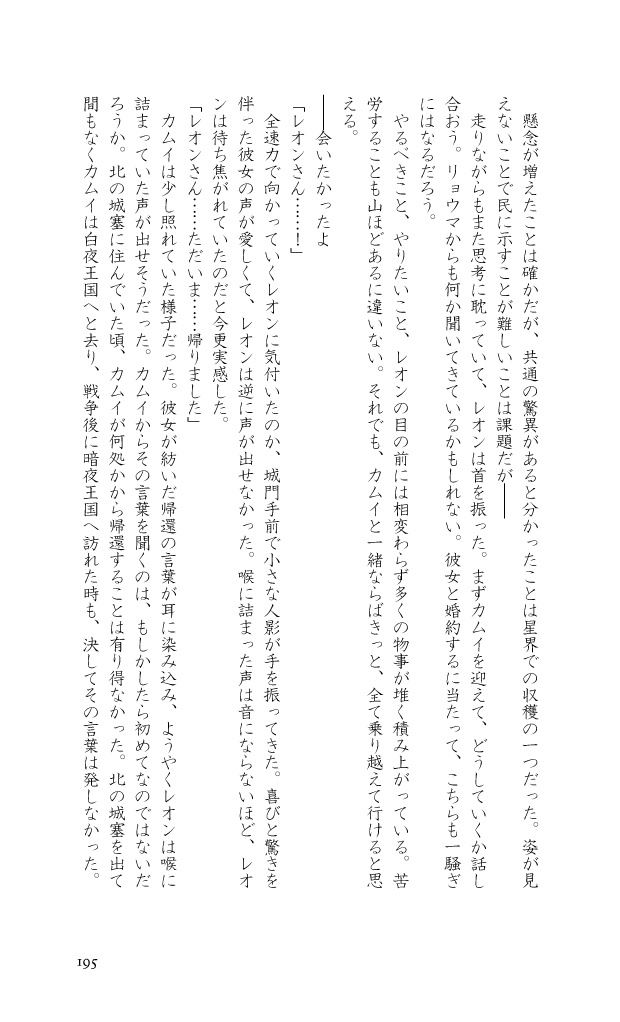 懸念が増えたことは確かだが、共通の驚異があると分かったことは星界での収穫の一つだった。姿が見
えないことで民に示すことが難しいことは課題だが――
　走りながらもまた思考に耽っていて、レオンは首を振った。まずカムイを迎えて、どうしていくか話し
合おう。リョウマからも何か聞いてきているかもしれない。彼女と婚約するに当たって、こちらも一騒ぎ
にはなるだろう。
　やるべきこと、やりたいこと、レオンの目の前には相変わらず多くの物事が堆く積み上がっている。苦
労することも山ほどあるに違いない。それでも、カムイと一緒ならばきっと、全て乗り越えて行けると思
える。
――会いたかったよ
「レオンさん……！」
　全速力で向かっていくレオンに気付いたのか、城門手前で小さな人影が手を振ってきた。喜びと驚きを
伴った彼女の声が愛しくて、レオンは逆に声が出せなかった。喉に詰まった声は音にならないほど、レオ
ンは待ち焦がれていたのだと今更実感した。
「レオンさん……ただいま……帰りました」
　カムイは少し照れていた様子だった。彼女が紡いだ帰還の言葉が耳に染み込み、ようやくレオンは喉に
詰まっていた声が出せそうだった。カムイからその言葉を聞くのは、もしかしたら初めてなのではないだ
ろうか。北の城塞に住んでいた頃、カムイが何処かから帰還することは有り得なかった。北の城塞を出て
間もなくカムイは白夜王国へと去り、戦争後に暗夜王国へ訪れた時も、決してその言葉は発しなかった。
195